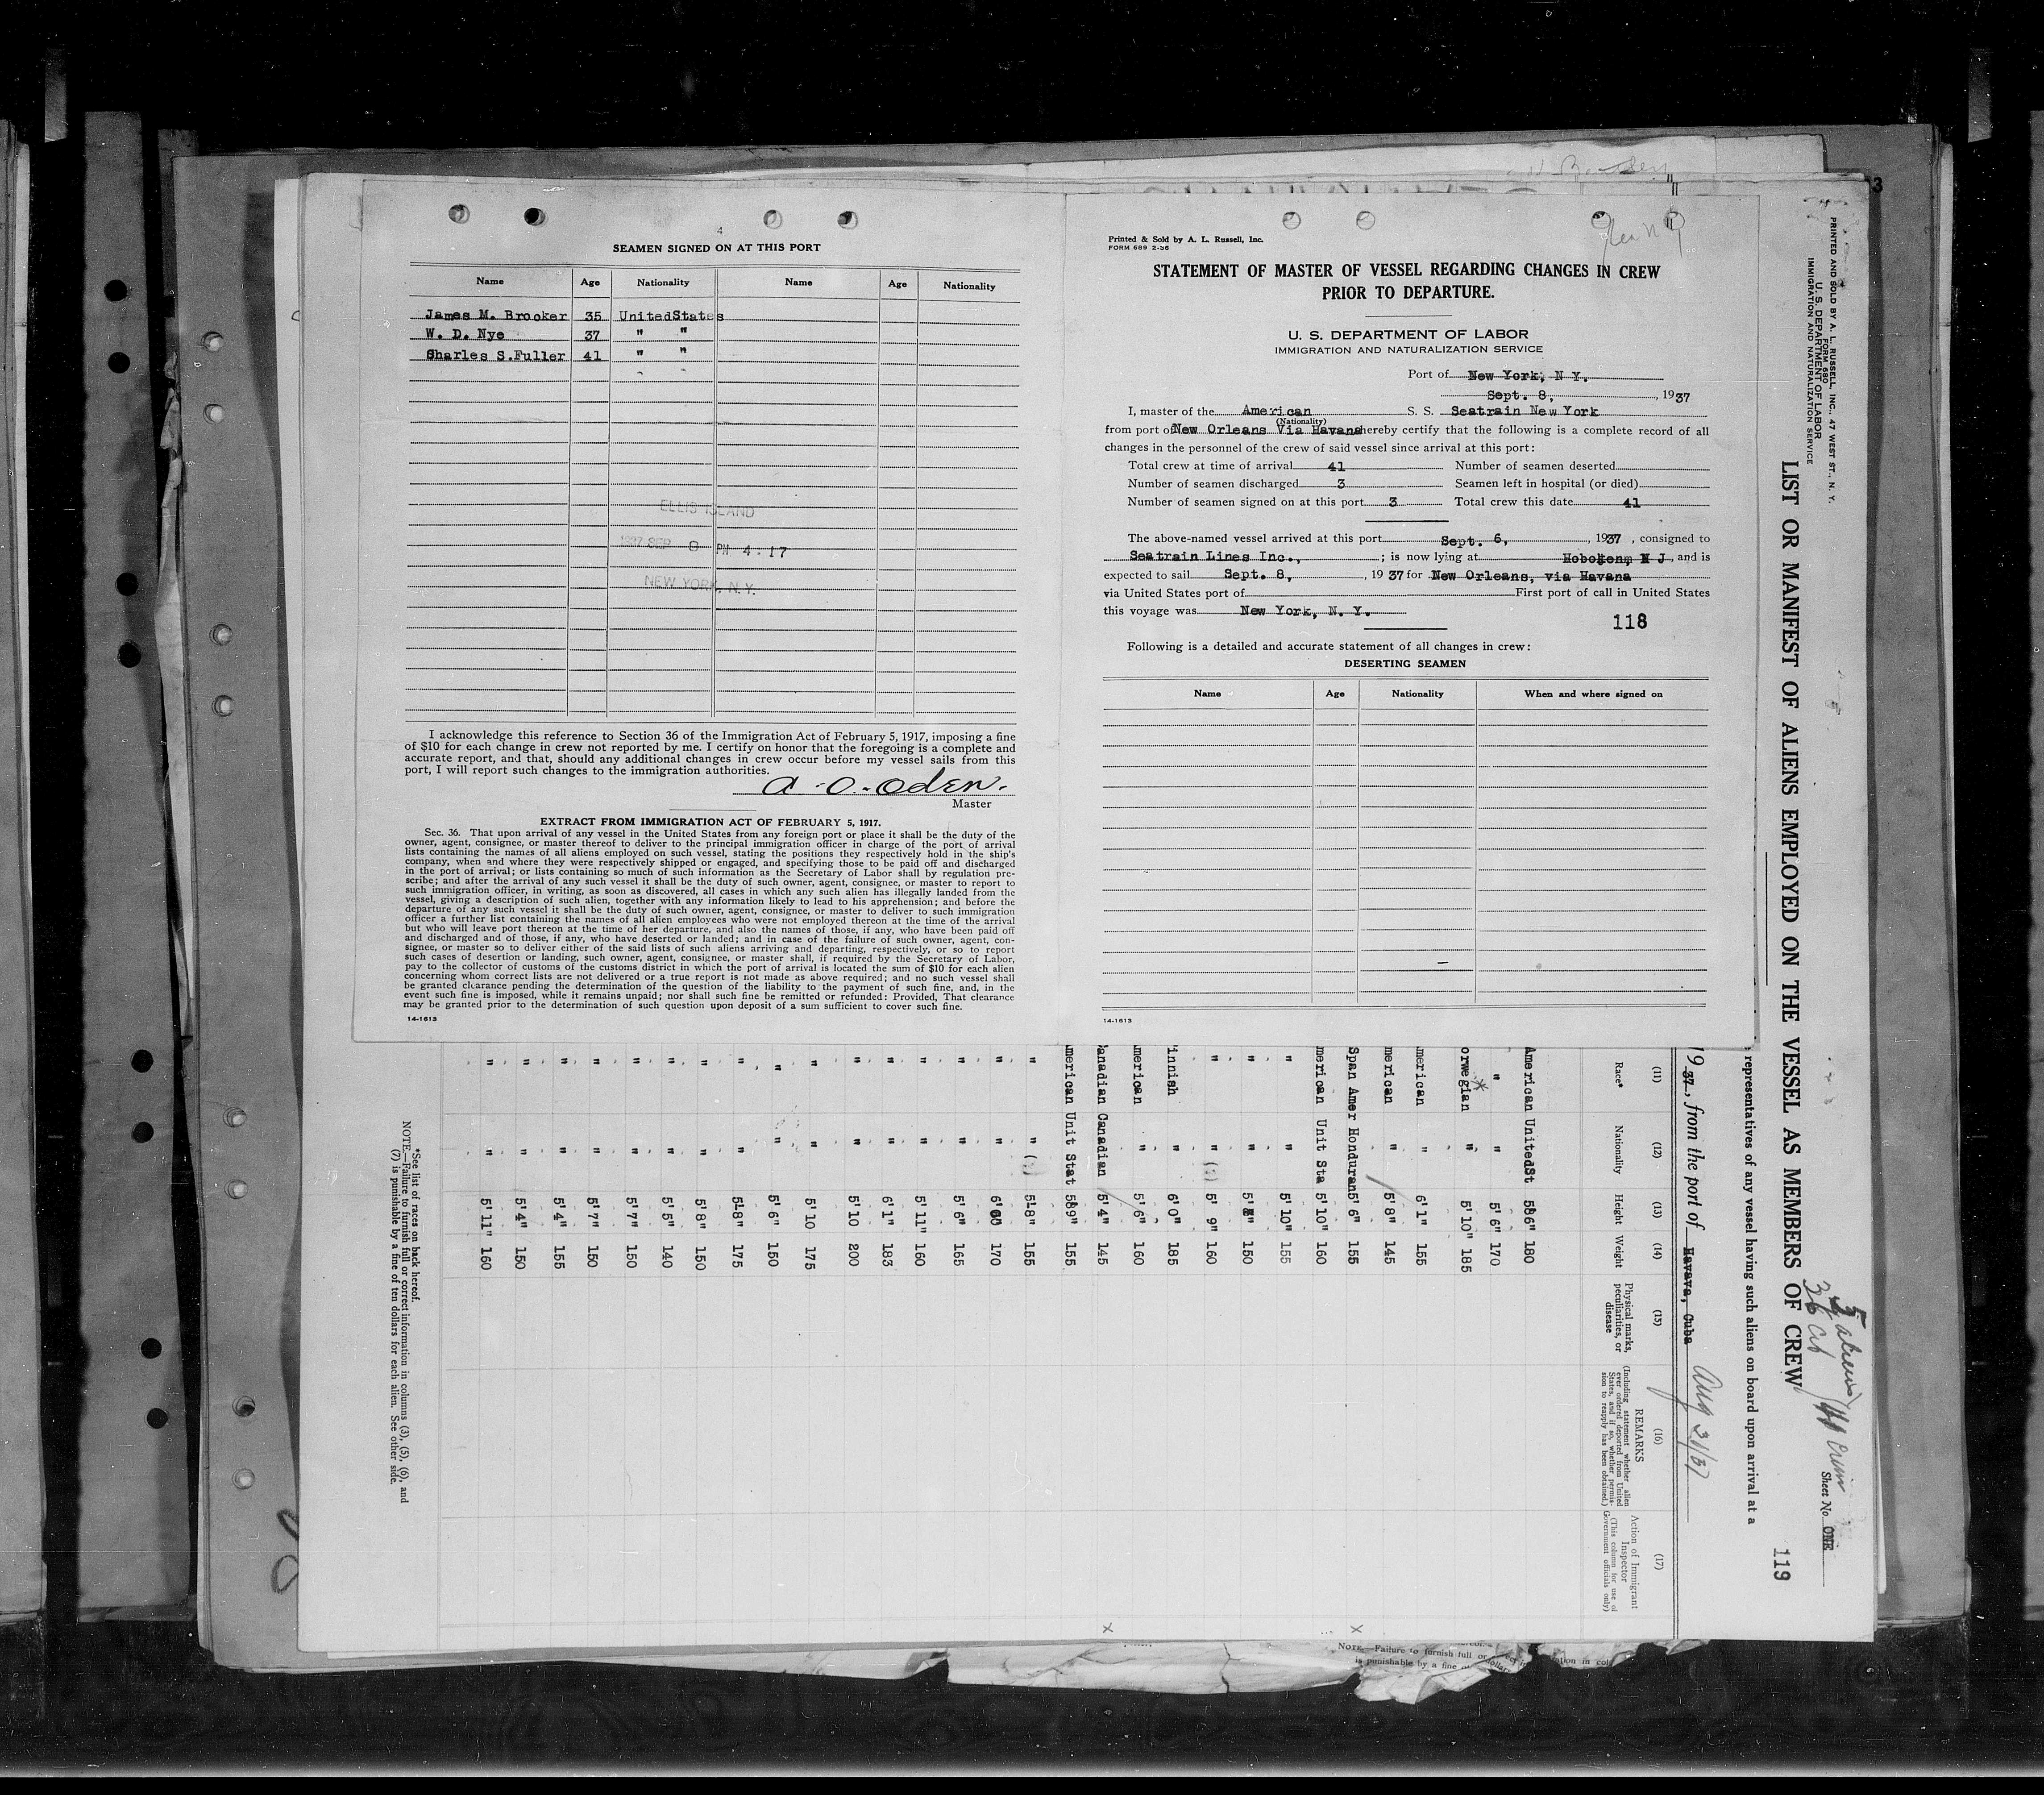 4
SEAMEN SIGNED ON AT THIS PORT
Name Age Nationality Name Age Nationality
James M. Brooker 35 UnitedStates
W. D. Nye 37 " "
Charles S.Fuller 41 " "
ELLIS ISLAND
1937 SEP 8 PM 4:17
NEW YORK, N.Y.
I acknowledge this reference to Section 36 of the Immigration Act of February 5, 1917, imposing a fine
of $10 for each change in crew not reported by me. I certify on honor that the foregoing is a complete and
accurate report, and that, should any additional changes in crew occur before my vessel sails from this
port, I will report such changes to the immigration authorities.
A. O. Oden.
Master
EXTRACT FROM IMMIGRATION ACT OF FEBRUARY 5, 1917.
Sec. 36. That upon arrival of any vessel in the United States from any foreign port or place it shall be the duty of the
owner, agent, consignee, or master thereof to deliver to the principal immigration officer in charge of the port of arrival
lists containing the names of all aliens employed on such vessel, stating the positions they respectively hold in the ship's
company, when and where they were respectively shipped or engaged, and specifying those to be paid off and discharged
in the port of arrival; or lists containing so much of such information as the Secretary of Labor shall by regulation pre-
scribe; and after the arrival of any such vessel it shall be the duty of such owner, agent, consignee, or master to report to
such immigration officer, in writing, as soon as discovered, all cases in which any such alien has illegally landed from the
vessel, giving a description of such alien, together with any information likely to lead to his apprehension; and before the
departure of any such vessel it shall be the duty of such owner, agent, consignee, or master to deliver to such immigration
officer a further list containing the names of all alien employees who were not employed thereon at the time of the arrival
but who will leave port thereon at the time of her departure, and also the names of those, if any, who have been paid off
and discharged and of those, if any, who have deserted or landed; and in case of the failure of such owner, agent, con-
signee, or master so to deliver either of the said lists of such aliens arriving and departing, respectively, or so to report
such cases of desertion or landing, such owner, agent, consignee, or master shall, if required by the Secretary of Labor,
pay to the collector of customs of the customs district in which the port of arrival is located the sum of $10 for each alien
concerning whom correct lists are not delivered or a true report is not made as above required; and no such vessel shall
be granted clearance pending the determination of the question of the liability to the payment of such fine, and, in the
event such fine is imposed, while it remains unpaid; nor shall such fine be remitted or refunded: Provided, That clearance
may be granted prior to the determination of such question upon deposit of a sum sufficient to cover such fine.
14-1613
Printed & Sold by A. L. Russell, Inc.
FORM 689 2-36
STATEMENT OF MASTER OF VESSEL REGARDING CHANGES IN CREW
PRIOR TO DEPARTURE.
U. S. DEPARTMENT OF LABOR
IMMIGRATION AND NATURALIZATION SERVICE
Port of New York, N Y.
Sept. 8, 1937
I, master of the American S. S. Seatrain New York
(Nationality)
from port of New Orleans Via Havana hereby certify that the following is a complete record of all
changes in the personnel of the crew of said vessel since arrival at this port:
Total crew at time of arrival 41 Number of seamen deserted
Number of seamen discharged 3 Seamen left in hospital (or died)
Number of seamen signed on at this port 3 Total crew this date 41
The above-named vessel arrived at this port Sept. 6, 1937, consigned to
Seatrain Lines Inc., ; is now lying at Hoboken, N J, and is
expected to sail Sept. 8, 1937 for New Orleans, via Havana
via United States port of First port of call in United States
this voyage was New York, N. Y.
118
Following is a detailed and accurate statement of all changes in crew:
DESERTING SEAMEN
Name Age Nationality When and where signed on
14-1613
PRINTED AND SOLD BY A. L. RUSSELL, INC., 47 WEST ST., N. Y.
FORM 680
U. S. DEPARTMENT OF LABOR
IMMIGRATION AND NATURALIZATION SERVICE
LIST OR MANIFEST OF ALIENS EMPLOYED ON THE VESSEL AS MEMBERS OF CREW
5 aliens
36 Cit
Sheet No. ONE
119
representatives of any vessel having such aliens on board upon arrival at a
1937, from the port of Havana, Cuba Aug 31/37
(11) (12) (13) (14) (15) (16) (17)
Race* Nationality Height Weight Physical marks, peculiarities, or disease
REMARKS
(Including statement whether alien ever ordered deported from United States, and if so, whether permission to reapply has been obtained.)
Action of Immigrant Inspector
(This column for use of Government officials only)
American UnitedSt 5'6" 180
" " 5' 6" 170
orwegian " 5' 10" 185
merican " 6'1" 155
merican " 5'8" 145
Span Amer Honduran 5' 6" 155
merican Unit Sta 5'10" 160
" " 5' 10" 155
" " 150
" " 5' 9" 160
innish " 6'0" 185
merican " 5' 6" 160
anadian Canadian 5'4" 145
merican Unit Stat 5'9" 155
" " 5'8" 155
" " 170
" " 5' 6" 165
" " 5' 11" 160
" " 6' 1" 183
" " 5' 10 200
" " 5' 10 175
" " 5' 6" 150
" " 5'8" 175
" " 5' 8" 150
" " 5' 5" 140
" " 5' 7" 150
" " 5' 7" 150
" " 5' 4" 155
" " 5' 4" 150
" " 5' 11" 160
*See list of races on back hereof.
NOTE.—Failure to furnish full or correct information in columns (3), (5), (6), and
(7) is punishable by a fine of ten dollars for each alien. See other side.
NOTE.—Failure to furnish full or
is punishable by a fine